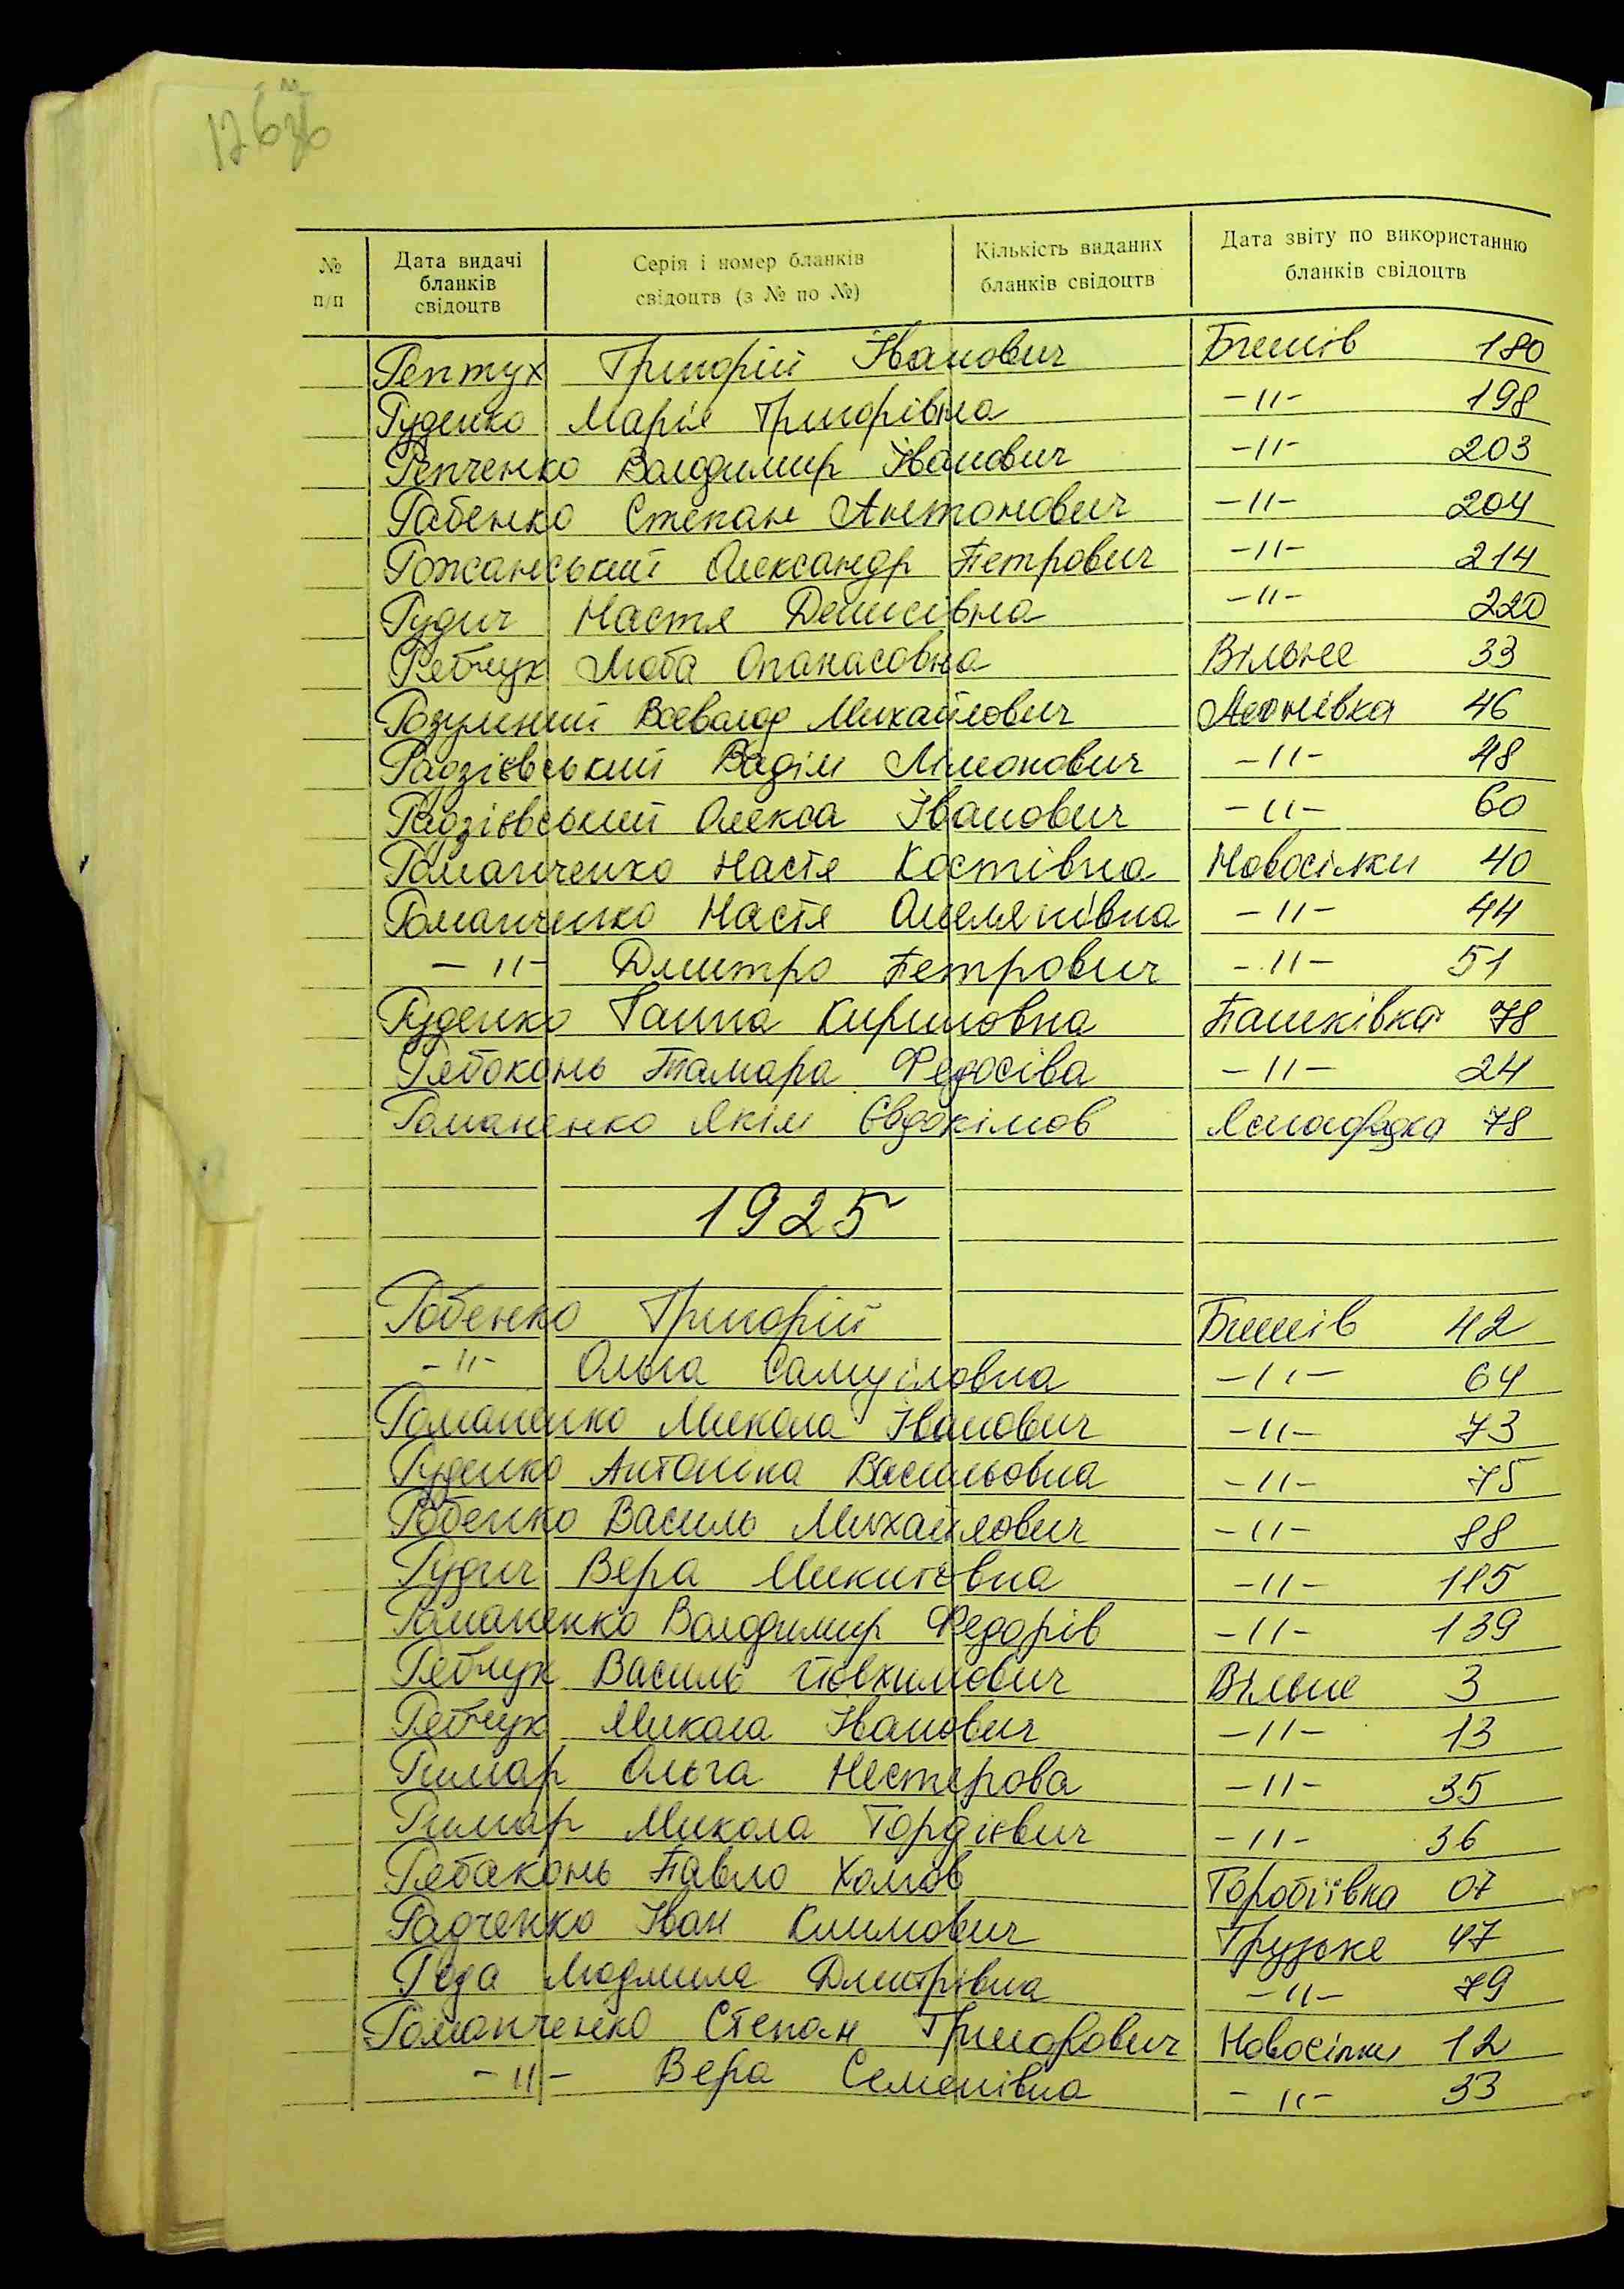 126зв
№ п/п Дата видачі бланків свідоцтв Серія і номер бланків свідоцтв (з № по №) Кількість виданих бланків свідоцтв Дата звіту по використанню бланків свідоцтв
Рептух Григорій Іванович Бишів 180
Руденко Марія Григорівна -〃- 198
Репченко Володимир Іванович -〃- 203
Рабенко Степан Антонович -〃- 204
Рожанський Олександр Петрович -〃- 214
Рудич Настя Денисівна -〃- 220
Рябчук Люба Опанасовна Вільне 33
Розумний Всеволод Михайлович Леонівка 46
Радзієвський Вадім Лімонович -〃- 48
Радзієвський Олекса Іванович -〃- 60
Романченко Настя Костівна Новосілки 40
Романченко Настя Омелянівна -〃- 44
-〃- Дмитро Петрович -〃- 51
Руденко Ганна Кириловна Пашківка 78
Рябоконь Тамара Федосіва -〃- 24
Романенко Якім Євдокімов Ясногородка 78
1925
Робенко Григорій Бишів 42
-〃- Ольга Самуіловна -〃- 64
Романенко Микола Іванович -〃- 73
Руденко Антоніна Васильовна -〃- 75
Робенко Василь Михайлович -〃- 88
Рудич Вера Микитовна -〃- 115
Романенко Володимир Федорів -〃- 139
Рябчук Василь Вільне 3
Рябчук Микола Іванович -〃- 13
Римар Ольга Нестерова -〃- 35
Римар Микола Гордієвич -〃- 36
Рябаконь Павло Хомов Горобіївка 07
Радченко Іван Климович Грузьке 47
Реза Людмила Дмитрівна -〃- 79
Романченко Степан Григорович Новосілки 12
-〃- Вера Семенівна -〃- 33